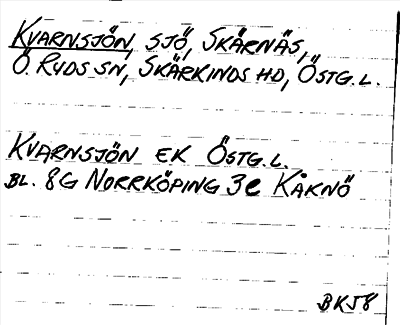 KVARNSJÖN, SJÖ, SKÄRNÄS,
Ö. RYDS SN, SKÄRKINDS HD, ÖSTG.L.
KVARNSJÖN EK ÖSTG.L.
BL. 8G NORRKÖPING 3e KÅKNÖ
BK58